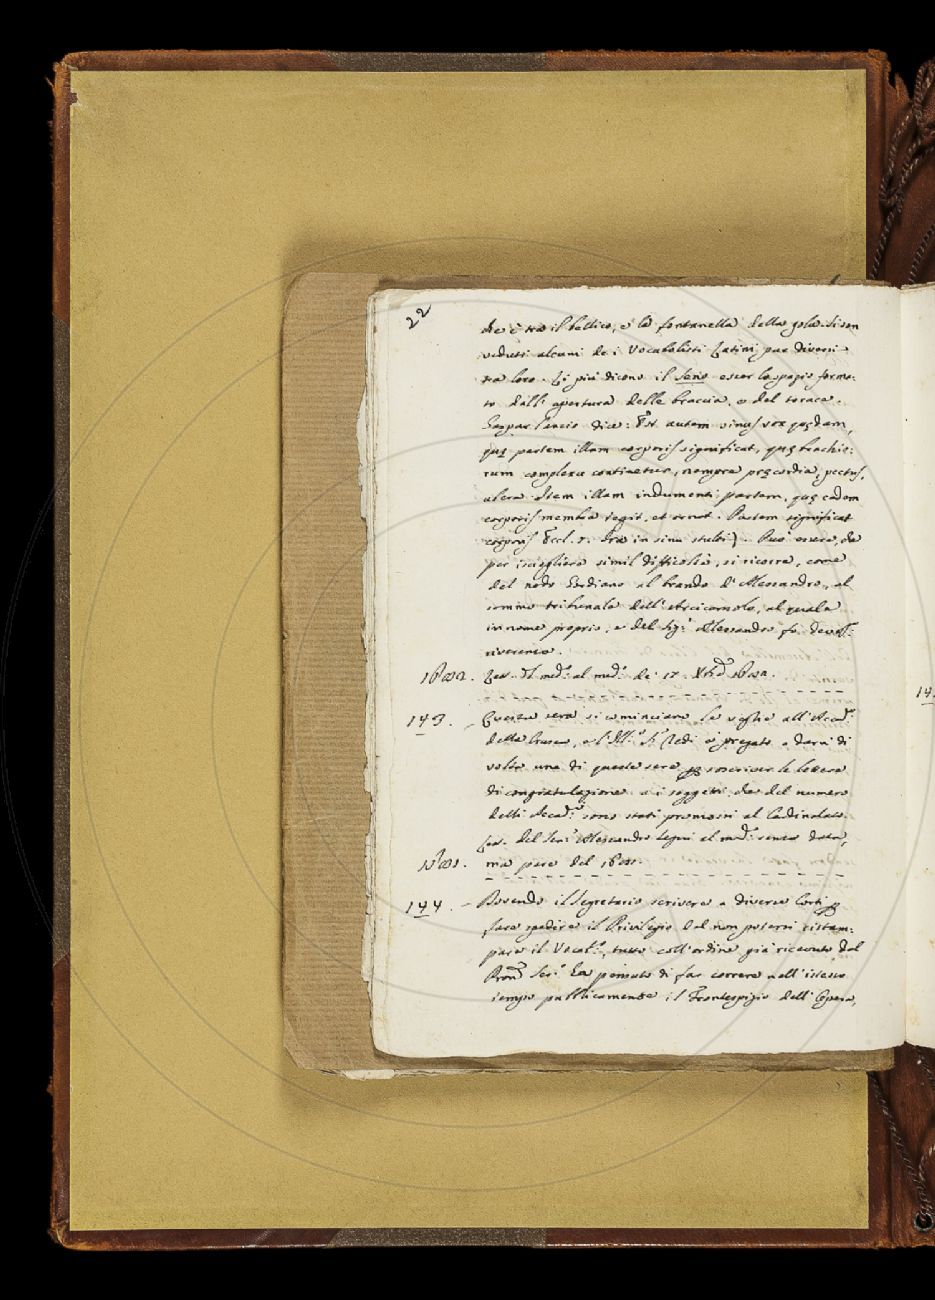 22
che è tra il bellico, e la fontanella della gola. si son
veduti alcuni de i Vocabolisti Latini pur diversi
tra loro. Li più dicono il seno esser lo spazio forma:
to dall' apertura delle braccia, e del torace.
Gaspar dice: Est autem sinus vox quędam,
quę partem illam corporis significat, quę brachio:
rum complexu continetur, nempe pręcordia, pectus,
ubera item illam indumenti partem, quę eadem
corporis membra tegit, et ornat. Partem significat
corporis Eccl. 7. Ira in sinu stulti). Può essere, che
per isciegliere simil difficoltà, si ricorra, come
del nodo Gordiano al brando d' Alessandro, al
sommo tribunale dell' Arciconsolo, al quale
in nome proprio, e del Sig.r Alessandro fo devot.
riverenza.
Lett. d. med.o al med.o de' 17. Xbre
143. - Questa sera si cominciano le veglie all' Accad.a
della Crusca, e l' Ill.mo S.r Redi è pregato a darci di
volta una di queste sere per soscriver le lettere
di congratulazione a i soggetti, che del numero
delli Accad.ci sono stati promossi al Cardinalato.
Lett. del Sen.r Alessandro Segni al med.o senza data,
ma pare del
144. - Dovendo il Segretario scrivere a diverse Corti per
fare spedire il Privilegio del non potersi ristam:
pare il Vocab.o, tutto coll' ordine già ricevuto dal
Pron.e Ser.o ha pensato di far correre nell' istesso
tempo pubblicamente il Frontespizio dell' Opera,
14